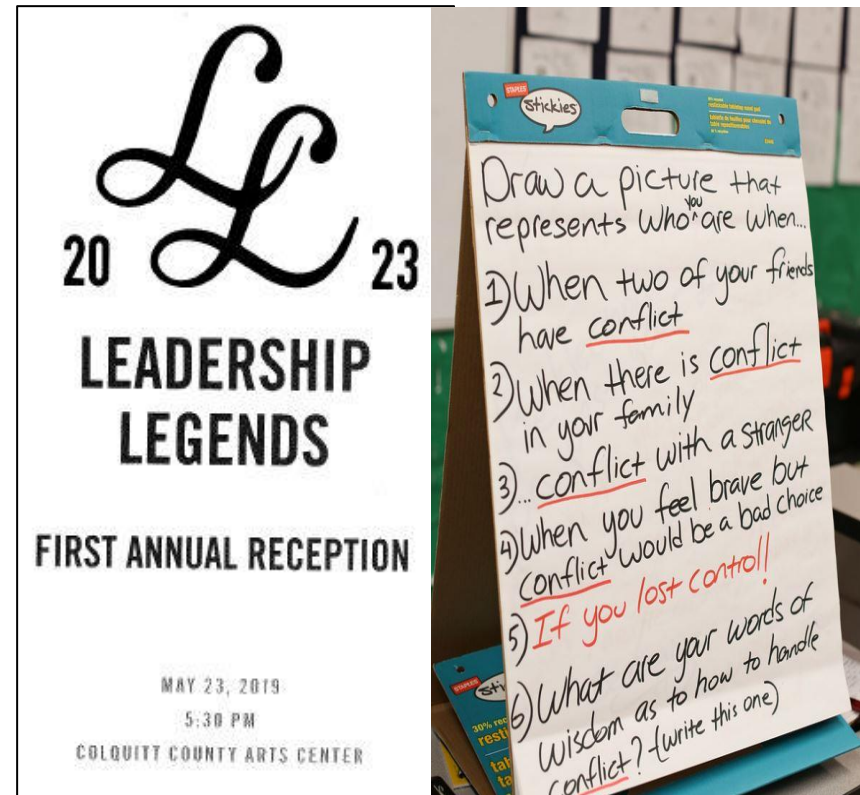 LL
20 23
LEADERSHIP
LEGENDS
FIRST ANNUAL RECEPTION
MAY 23, 2019
5:30 PM
COLQUITT COUNTY ARTS CENTER
STAPLES
Stickies
Draw a picture that
represents who you are when...
1) When two of your friends
have conflict
2) When there is conflict
in your family
3) ... conflict with a stranger
4) When you feel brave but
conflict would be a bad choice
5) If you lost control!
6) What are your words of
wisdom as to how to handle
conflict? (write this one)
STAPLES
Sti
30% rec
resti
tab
ta